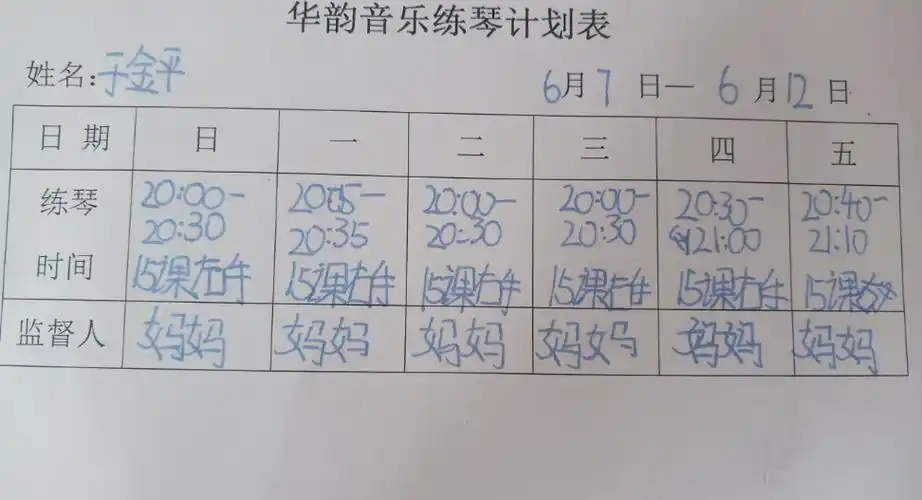 华韵音乐练琴计划表
姓名:于金平 6月7日— 6月12日
日期 日 一 二 三 四 五
练琴 20:00— 20:05— 20:00— 20:00— 20:30— 20:40—
20:30 20:35 20:30 20:30 21:00 21:10
时间 15课右手 15课右手 15课右手 15课右手 15课右手 15课
监督人 妈妈 妈妈 妈妈 妈妈 妈妈 妈妈